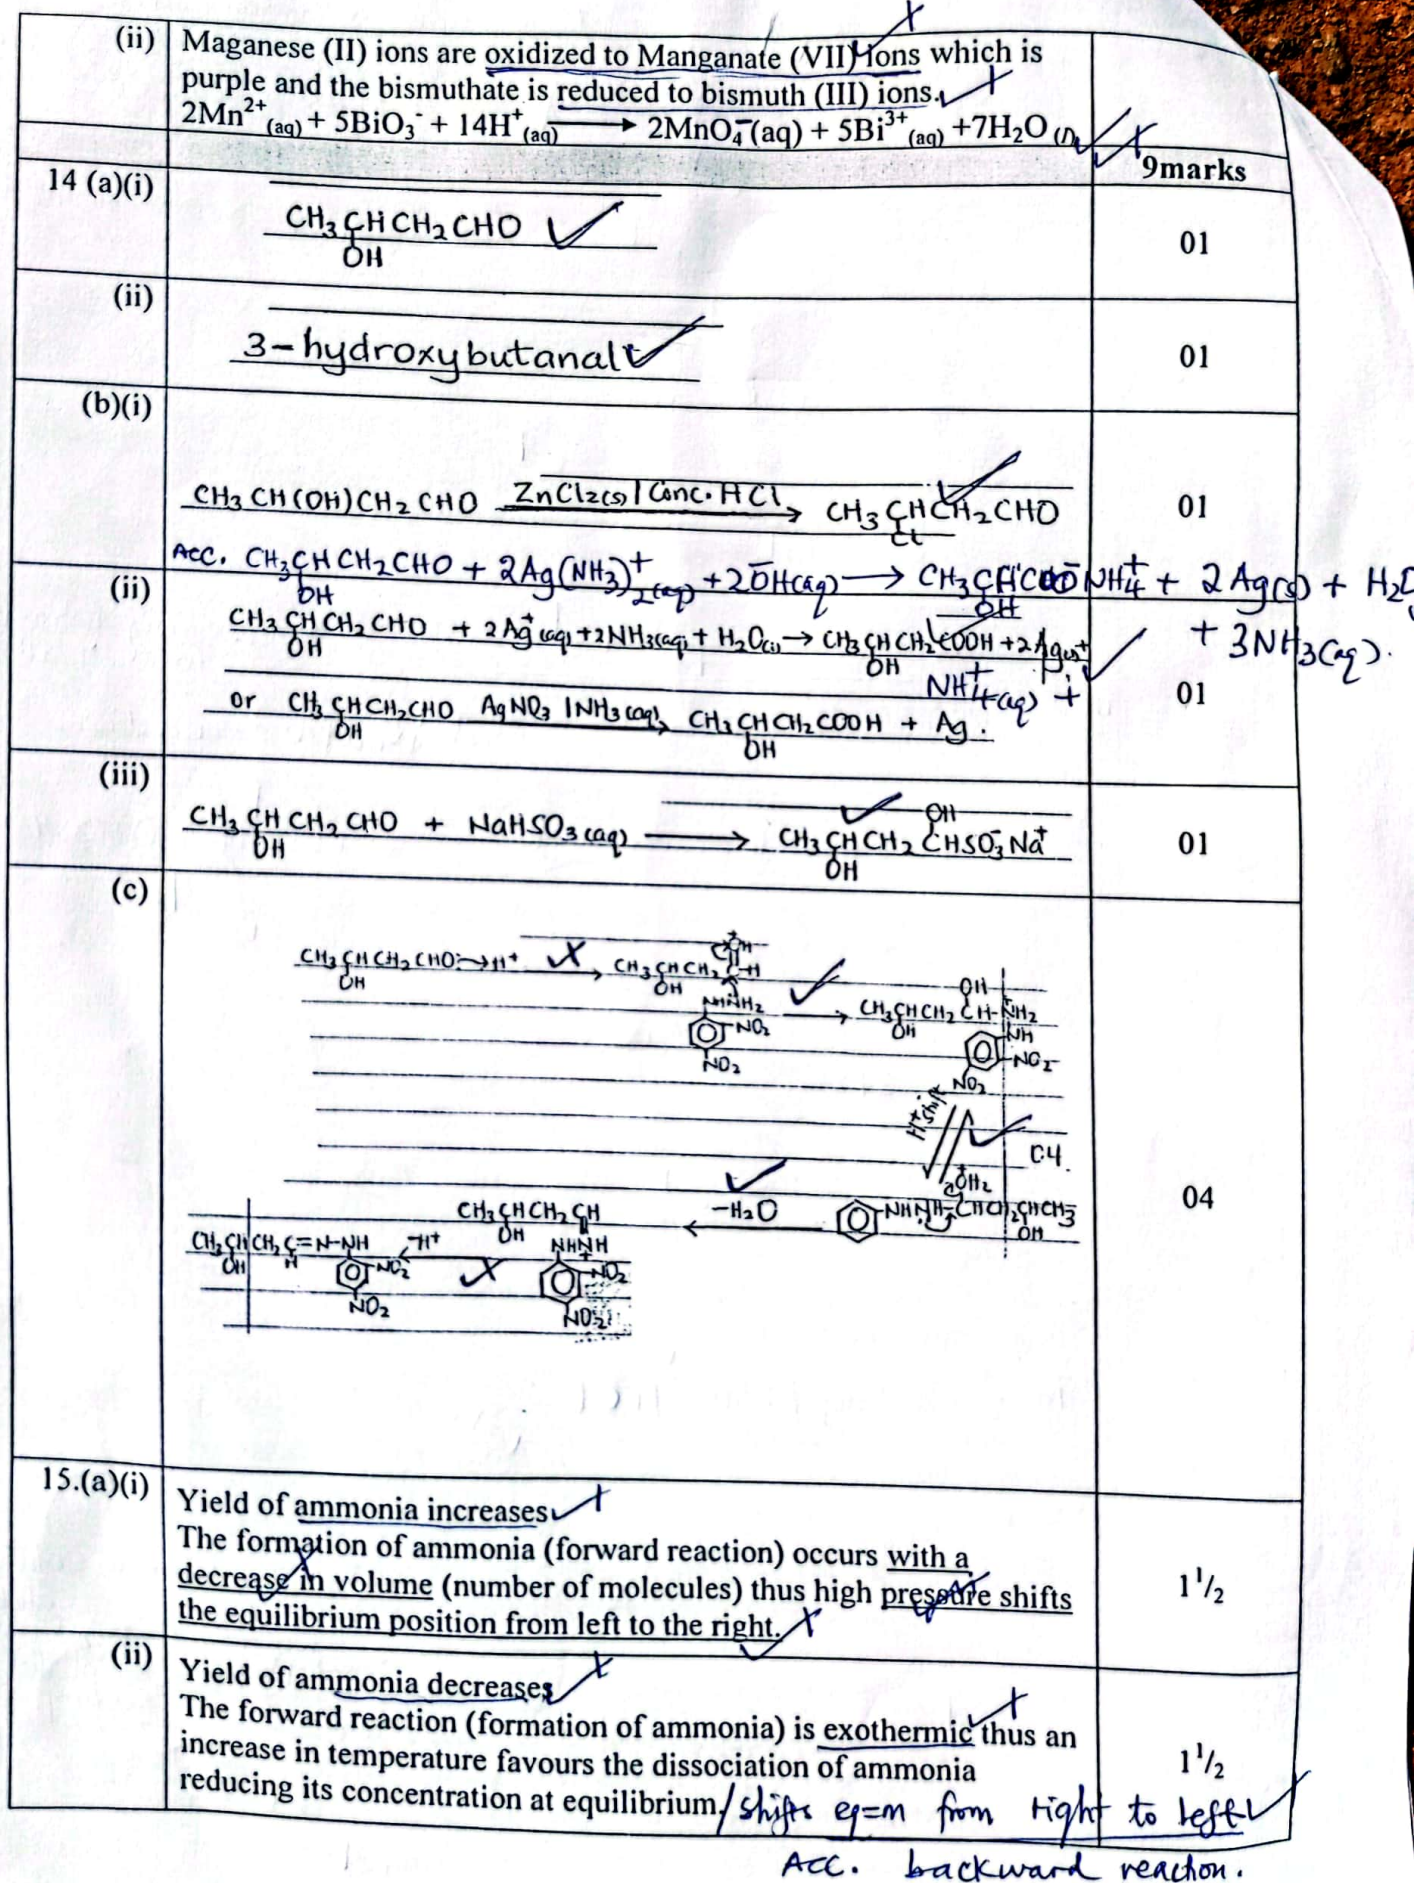 (ii) Maganese (II) ions are oxidized to Manganate (VII) ions which is
purple and the bismuthate is reduced to bismuth (III) ions.
2Mn²⁺(aq) + 5BiO₃⁻ + 14H⁺(aq) → 2MnO₄⁻(aq) + 5Bi³⁺(aq) +7H₂O(l)
9marks
14 (a)(i) CH₃CHCH₂CHO 01
OH
(ii) 3-hydroxybutanal 01
(b)(i)
CH₃CH(OH)CH₂CHO ZnCl₂(s) / Conc. HCl → CH₃CHCH₂CHO 01
Cl
Acc. CH₃CHCH₂CHO + 2Ag(NH₃)₂⁺(aq) + 2OH⁻(aq) → CH₃CHCOO⁻NH₄⁺ + 2Ag(s) + H₂O
OH OH
+ 3NH₃(aq).
(ii) CH₃CHCH₂CHO + 2Ag⁺(aq) + 2NH₃(aq) + H₂O(l) → CH₃CHCH₂COOH + 2Ag(s) +
OH OH
NH₄⁺(aq) + 01
or CH₃CHCH₂CHO AgNO₃ / NH₃(aq) → CH₃CHCH₂COOH + Ag.
OH OH
(iii) OH
CH₃CHCH₂CHO + NaHSO₃(aq) → CH₃CHCH₂CHSO₃⁻Na⁺ 01
OH OH
(c)
CH₃CHCH₂CHO: → H⁺ → CH₃CHCH₂C-H
OH OH
⁺OH
NHNH₂
NO₂
NO₂
→ CH₃CHCH₂CH-⁺NH₂
OH
OH
NH
NO₂
NO₂
H⁺ shift
04.
⁺OH₂
NHNH-CHCH₂CHCH₃
OH
-H₂O
04
CH₃CHCH₂CH
OH NHNH
+
NO₂
NO₂
-H⁺
CH₃CHCH₂C=N-NH
OH H
NO₂
NO₂
15.(a)(i) Yield of ammonia increases
The formation of ammonia (forward reaction) occurs with a
decrease in volume (number of molecules) thus high pressure shifts 1¹/₂
the equilibrium position from left to the right.
(ii) Yield of ammonia decreases
The forward reaction (formation of ammonia) is exothermic thus an
increase in temperature favours the dissociation of ammonia 1¹/₂
reducing its concentration at equilibrium. / shifts eq=m from right to left
Acc. backward reaction.